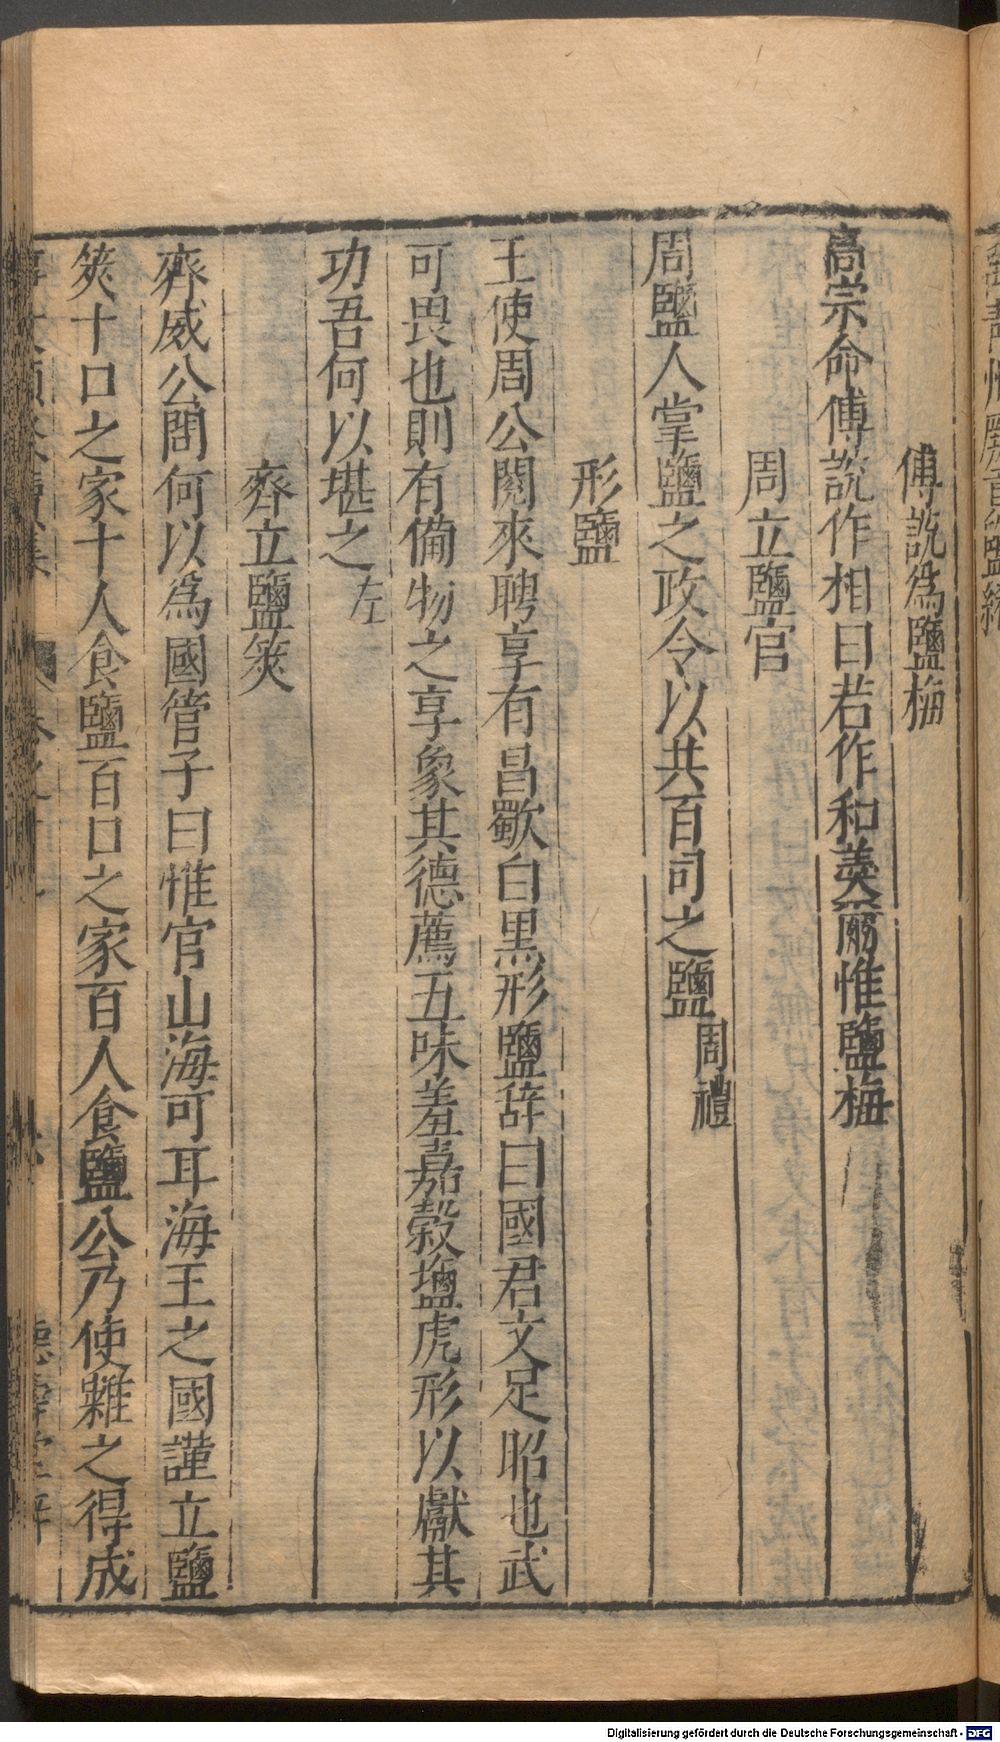 傅說為鹽梅
高宗命傅說作相曰若作和羹爾惟鹽梅
周立鹽官
周鹽人掌鹽之政令以共百司之鹽周禮
形鹽
王使周公閱來聘享有昌歜白黑形鹽辭曰國君文足昭也武
可畏也則有備物之享象其德薦五味羞嘉榖塩虎形以獻其
功吾何以堪之左
齊立鹽筴
齊威公問何以為國管子曰惟官山海可耳海王之國謹立鹽
筴十口之家十人食鹽百口之家百人食鹽公乃使糶之得成
Digitalisierung gefördert durch die Deutsche Forschungsgemeinschaft - DFG